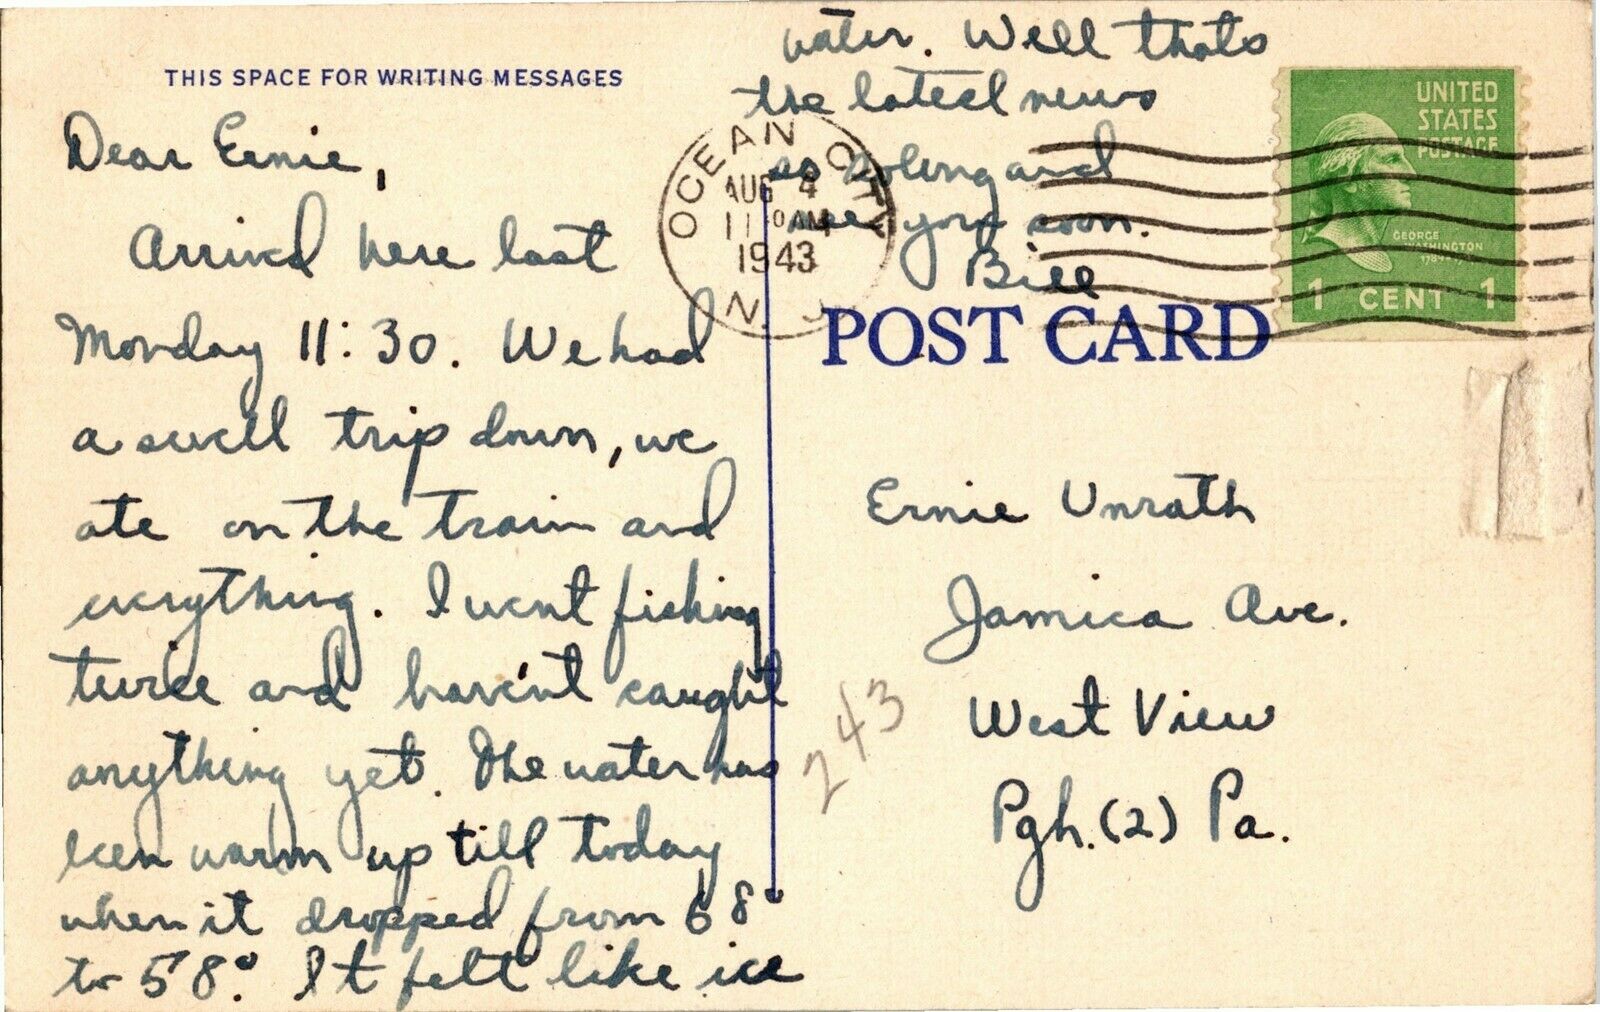 THIS SPACE FOR WRITING MESSAGES
Dear Ernie,
Arrived here last
Monday 11:30. We had
a swell trip down, we
ate on the train and
everything. I went fishing
twice and haven't caught
anything yet. The water has
been warm up till today
when it dropped from 68°
to 58°. It felt like ice
water. Well thats
the latest news
so solong and
see you soon.
Bill
OCEAN CITY
AUG 4
11 30 AM
1943
N. J.
UNITED
STATES
POSTAGE
GEORGE
WASHINGTON
1 CENT 1
POST CARD
Ernie Unrath
Jamica Ave.
West View
Pgh. (2) Pa.
243